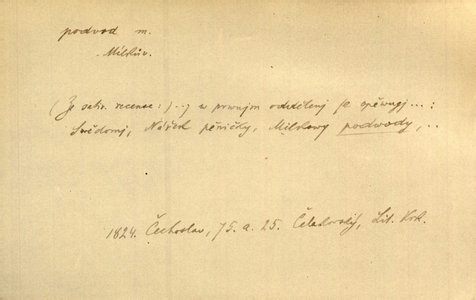 podvod m.
Milkův.
(Ze satir. recense:)...) w prwnjm oddělenj se zpěwugj...:
Swědomj, Nářek pěničky, Milkowy podwody,..
1824. Čechoslav, 75. a. 25. Čelakovský, Lit. Krk.